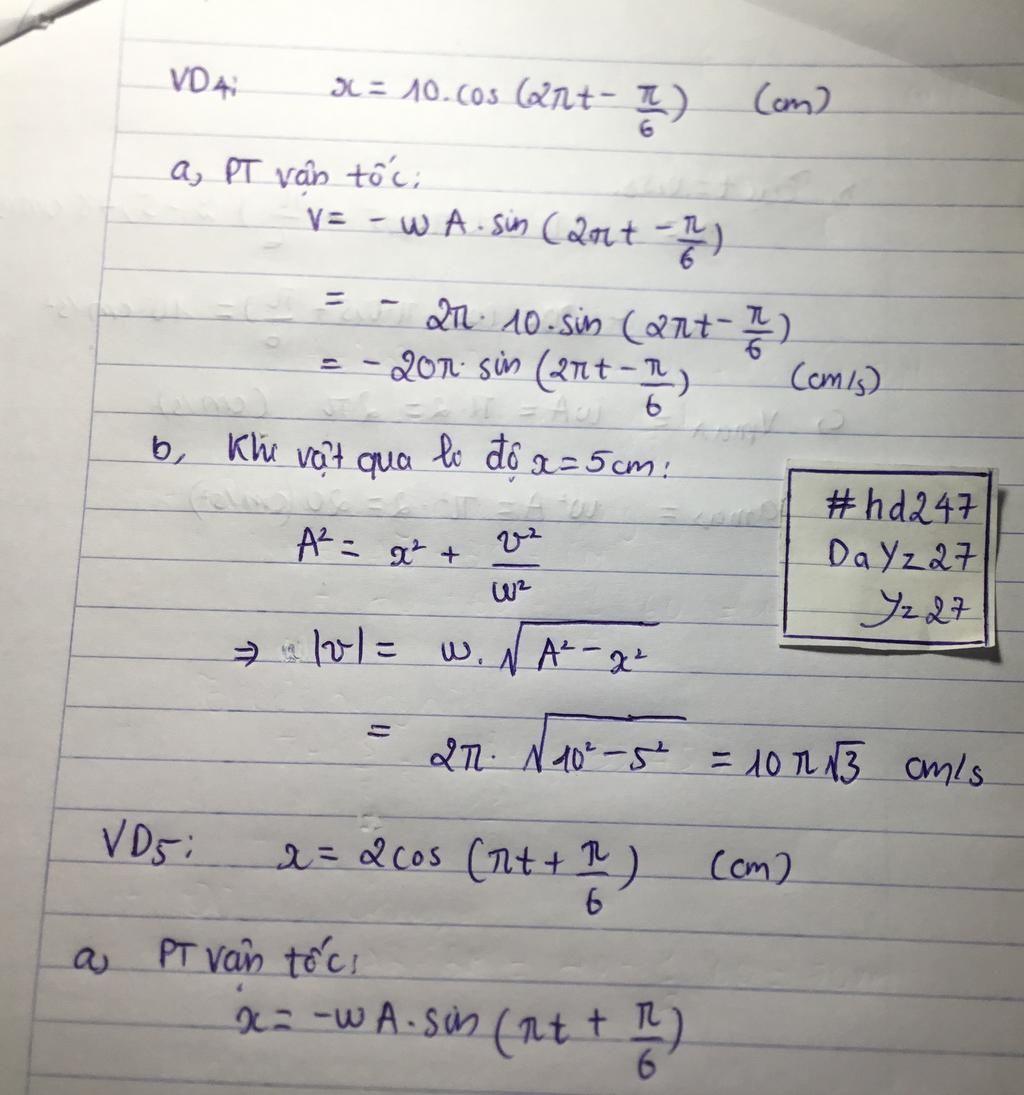 VD4: x = 10.cos (2πt - π/6) (cm)
a, PT vận tốc:
V = - ω A . sin (2πt - π/6)
= - 2π . 10 . sin (2πt - π/6)
= - 20π . sin (2πt - π/6) (cm/s)
b, Khi vật qua li độ x = 5cm:
A² = x² + v²/ω²
⇒ |v| = ω. √(A² - x²)
= 2π. √(10² - 5²) = 10π√3 cm/s
#hd247
DaYz27
Yz27
VD5: x = 2cos (πt + π/6) (cm)
a, PT vận tốc:
x = -ω A . sin (πt + π/6)